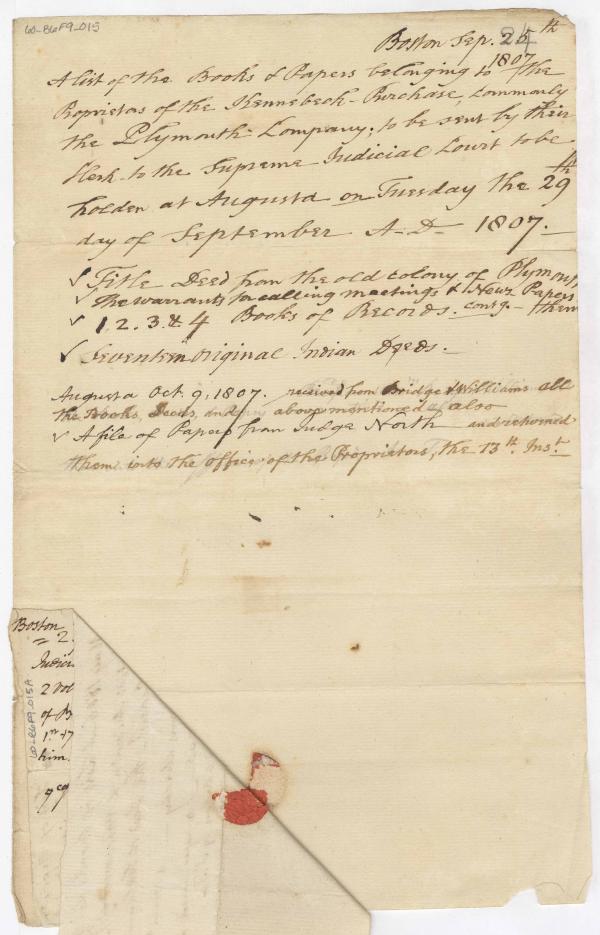 60-86F9-015
Boston Sep. 25th
1807
A list of the Books & Papers belonging to the
Proprietors of the Kennebeck-Purchase, commonly
the Plymouth-Company, to be sent by their
Clerk to the Supreme Judicial Court to be
holden at Augusta on Tuesday the 29th
day of September A-D- 1807.
✓ Title Deed from the old colony of Plymouth
✓ The warrants for calling meetings & News Papers
✓ 1. 2. 3. & 4 Books of Records. contg. them
✓ Seventeen original Indian Deeds.
Augusta Oct. 9, 1807. received from Bridge & Williams all
the Books, Deeds, and above mentioned also
✓ A file of Papers from Judge North and returned
them into the office of the Proprietors, the 13th. Inst.
Boston
= 2.
Judici
2 vol
of B
him.
60-86F9-015A